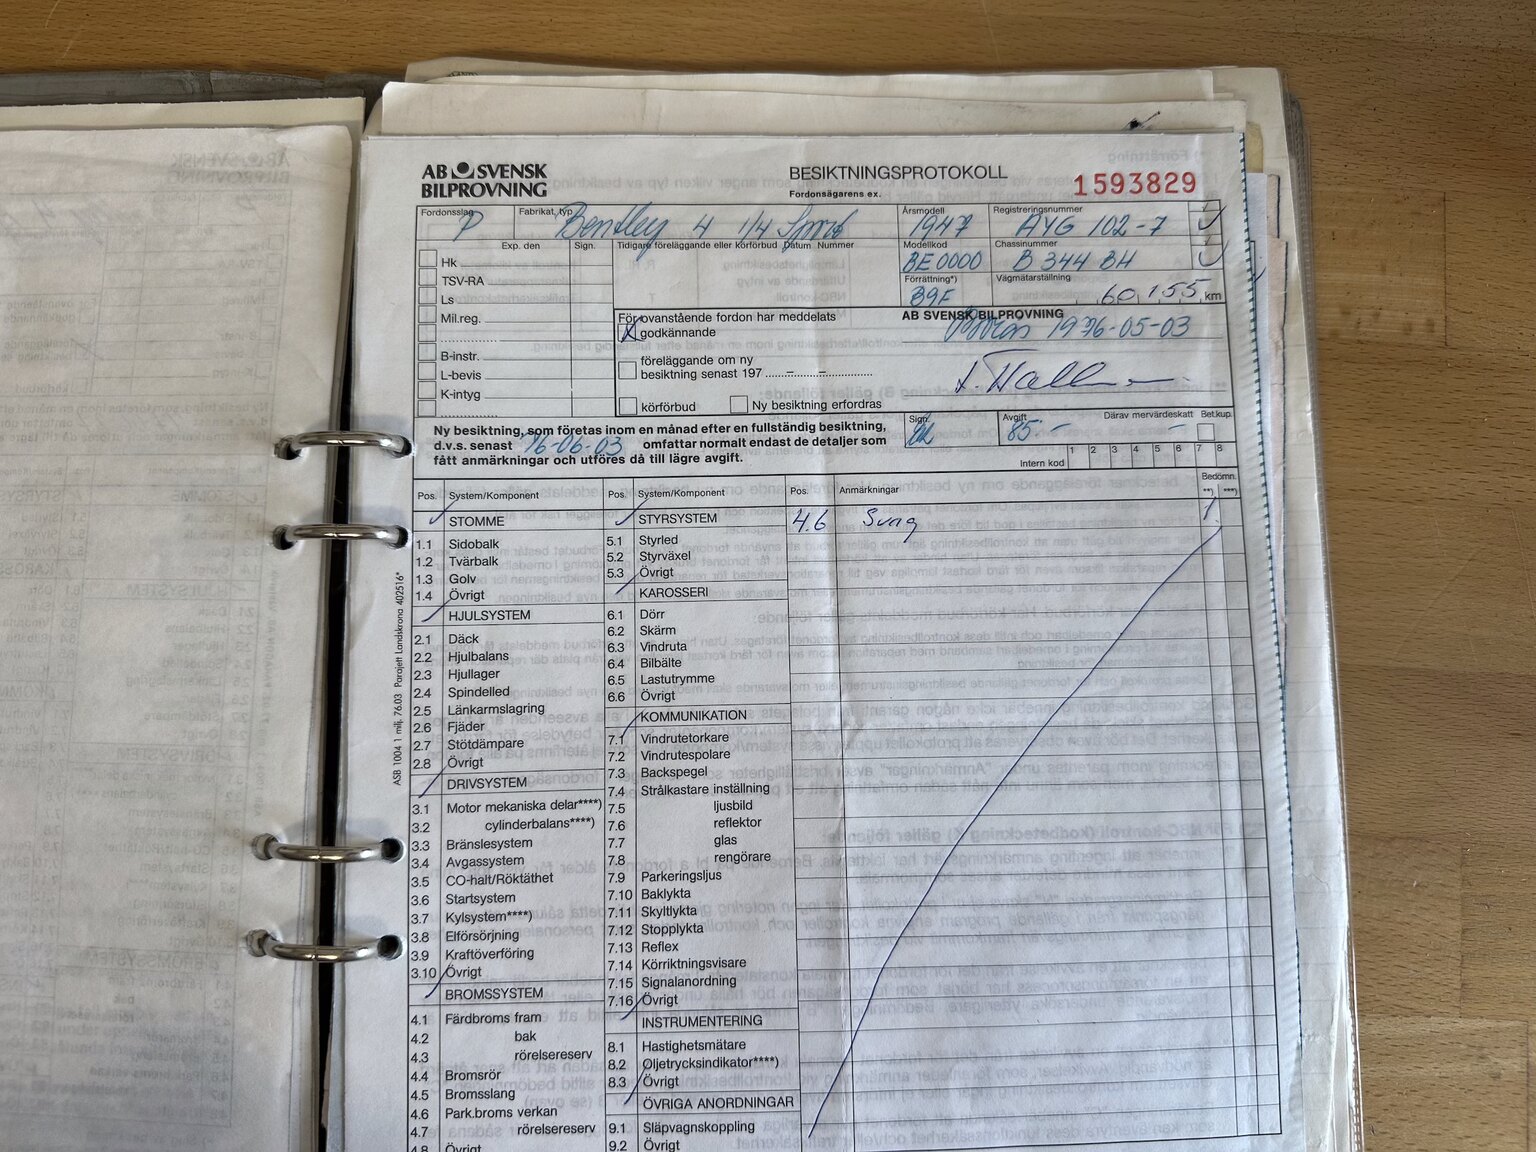 AB SVENSK
BILPROVNING
BESIKTNINGSPROTOKOLL
Fordonsägarens ex.
1593829
Fordonsslag P
Fabrikat, typ Bentley 4 1/4
Årsmodell 1947
Registreringsnummer AYG 102-7
Modellkod BE0000
Chassinummer B 344 BH
Förrättning*) B9F
Vägmätarställning 60155 km
Exp. den Sign.
Hk
TSV-RA
Ls
Mil.reg.
B-instr.
L-bevis
K-intyg
Tidigare föreläggande eller körförbud Datum Nummer
För ovanstående fordon har meddelats
X godkännande
föreläggande om ny
besiktning senast 197 – –
körförbud Ny besiktning erfordras
AB SVENSK BILPROVNING
1976-05-03
Ny besiktning, som företas inom en månad efter en fullständig besiktning,
d.v.s. senast 76-06-03 omfattar normalt endast de detaljer som
fått anmärkningar och utföres då till lägre avgift.
Sign.
Avgift 85:-
Därav mervärdeskatt -
Bet.kup.
Intern kod 1 2 3 4 5 6 7 8
Pos. System/Komponent
STOMME
1.1 Sidobalk
1.2 Tvärbalk
1.3 Golv
1.4 Övrigt
HJULSYSTEM
2.1 Däck
2.2 Hjulbalans
2.3 Hjullager
2.4 Spindelled
2.5 Länkarmslagring
2.6 Fjäder
2.7 Stötdämpare
2.8 Övrigt
DRIVSYSTEM
3.1 Motor mekaniska delar****)
3.2 cylinderbalans****)
3.3 Bränslesystem
3.4 Avgassystem
3.5 CO-halt/Röktäthet
3.6 Startsystem
3.7 Kylsystem****)
3.8 Elförsörjning
3.9 Kraftöverföring
3.10 Övrigt
BROMSSYSTEM
4.1 Färdbroms fram
4.2 bak
4.3 rörelsereserv
4.4 Bromsrör
4.5 Bromsslang
4.6 Park.broms verkan
4.7 rörelsereserv
4.8 Övrigt
Pos. System/Komponent
STYRSYSTEM
5.1 Styrled
5.2 Styrväxel
5.3 Övrigt
KAROSSERI
6.1 Dörr
6.2 Skärm
6.3 Vindruta
6.4 Bilbälte
6.5 Lastutrymme
6.6 Övrigt
KOMMUNIKATION
7.1 Vindrutetorkare
7.2 Vindrutespolare
7.3 Backspegel
7.4 Strålkastare inställning
7.5 ljusbild
7.6 reflektor
7.7 glas
7.8 rengörare
7.9 Parkeringsljus
7.10 Baklykta
7.11 Skyltlykta
7.12 Stopplykta
7.13 Reflex
7.14 Körriktningsvisare
7.15 Signalanordning
7.16 Övrigt
INSTRUMENTERING
8.1 Hastighetsmätare
8.2 Oljetrycksindikator****)
8.3 Övrigt
ÖVRIGA ANORDNINGAR
9.1 Släpvagnskoppling
9.2 Övrigt
Pos. Anmärkningar Bedömn.
**) ***)
4.6 Svag 1
ASB 1004 1 milj. 76.03 Parajett Landskrona 402516*